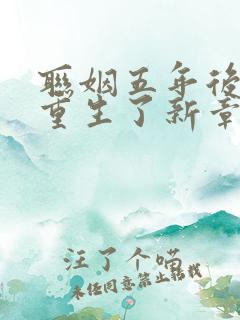 联姻五年后
重生了新章
汪了个喵
未经同意禁止转载